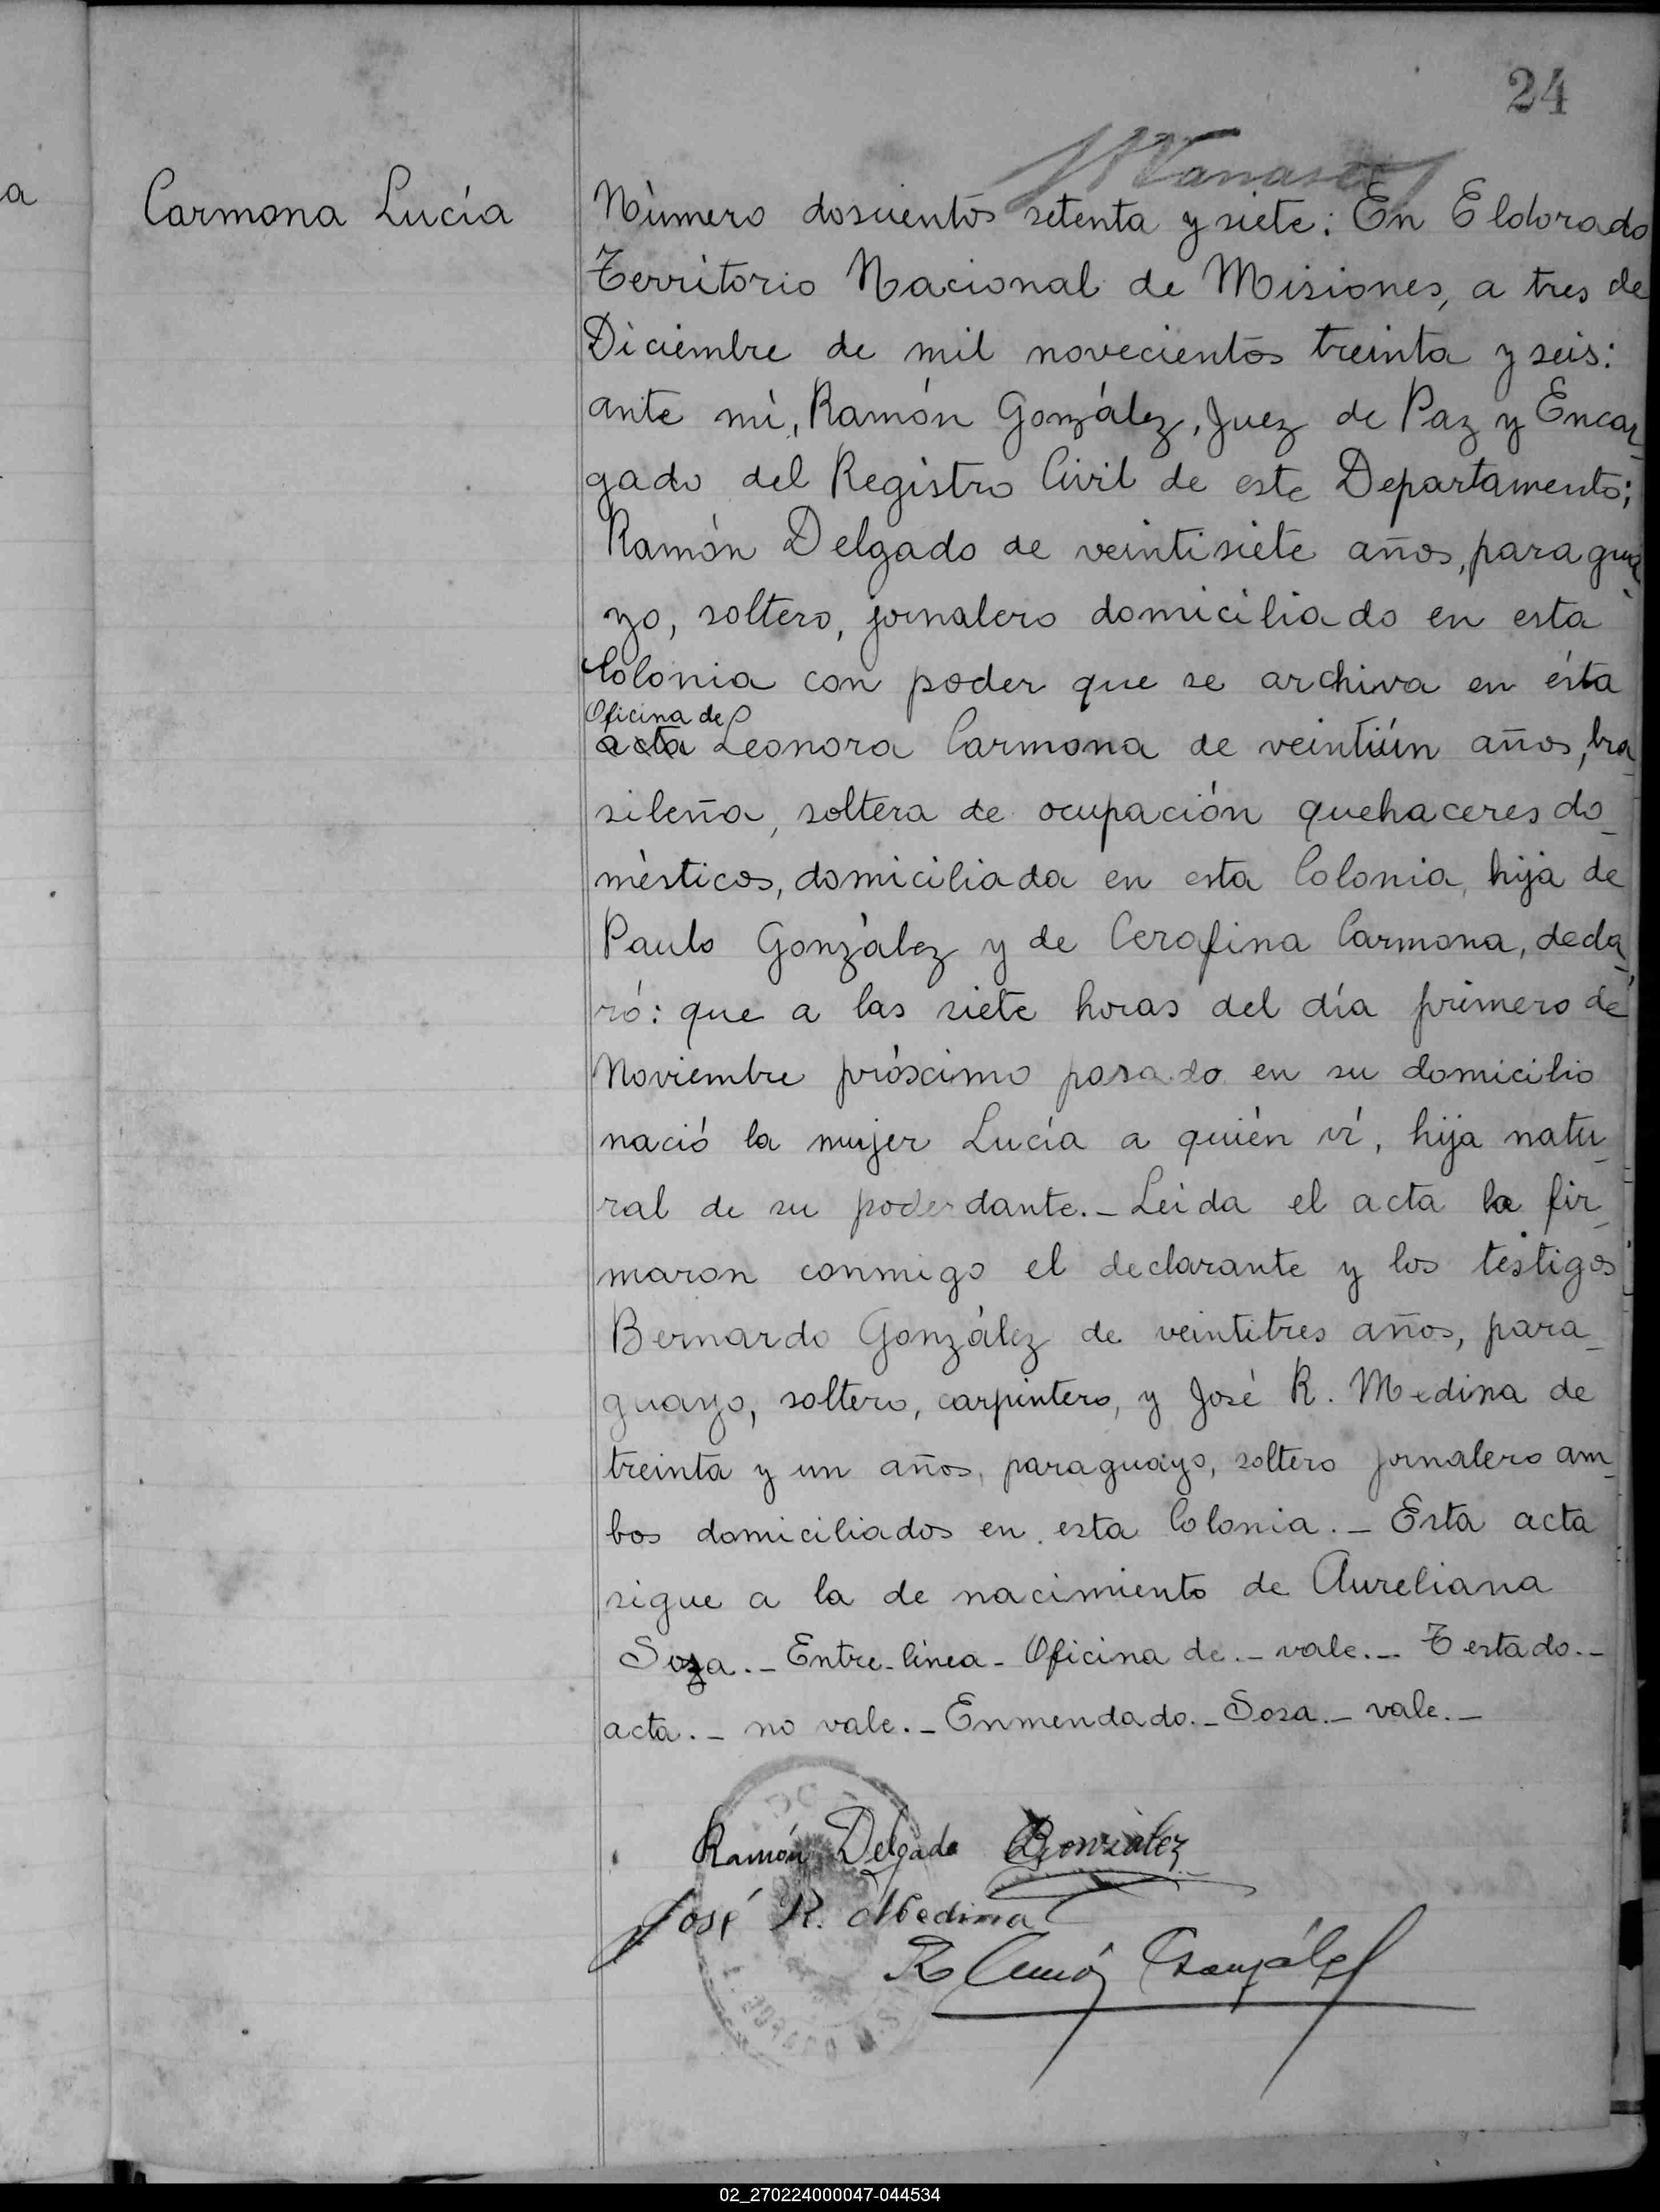 24
a
Carmona Lucía
Número doscientos setenta y siete: En Eldorado
Territorio Nacional de Misiones, a tres de
Diciembre de mil novecientos treinta y seis:
ante mí, Ramón González, Juez de Paz y Encar_
gado del Registro Civil de este Departamento;
Ramón Delgado de veintisiete años, paragua_
yo, soltero, jornalero domiciliado en esta
Colonia con poder que se archiva en ésta
Oficina de
acta Leonora Carmona de veintiún años, bra_
sileña, soltera de ocupación quehaceres do_
mésticos, domiciliada en esta Colonia, hija de
Paulo González y de Cerafina Carmona, decla_
ró: que a las siete horas del día primero de
Noviembre próximo pasado en su domicilio
nació la mujer Lucía a quién ví, hija natu_
ral de su poderdante._ Leida el acta la fir_
maron conmigo el declarante y los testigos
Bernardo González de veintitres años, para_
guayo, soltero, carpintero, y José R. Medina de
treinta y un años, paraguayo, soltero jornalero am_
bos domiciliados en esta Colonia._ Esta acta
sigue a la de nacimiento de Aureliana
Soza._ Entre-línea_ Oficina de._ vale._ Testado._
acta._ no vale._ Enmendado._ Sosa._ vale._
Ramón Delgado BGonzález
José R. Medina
Ramón González
02_270224000047-044534